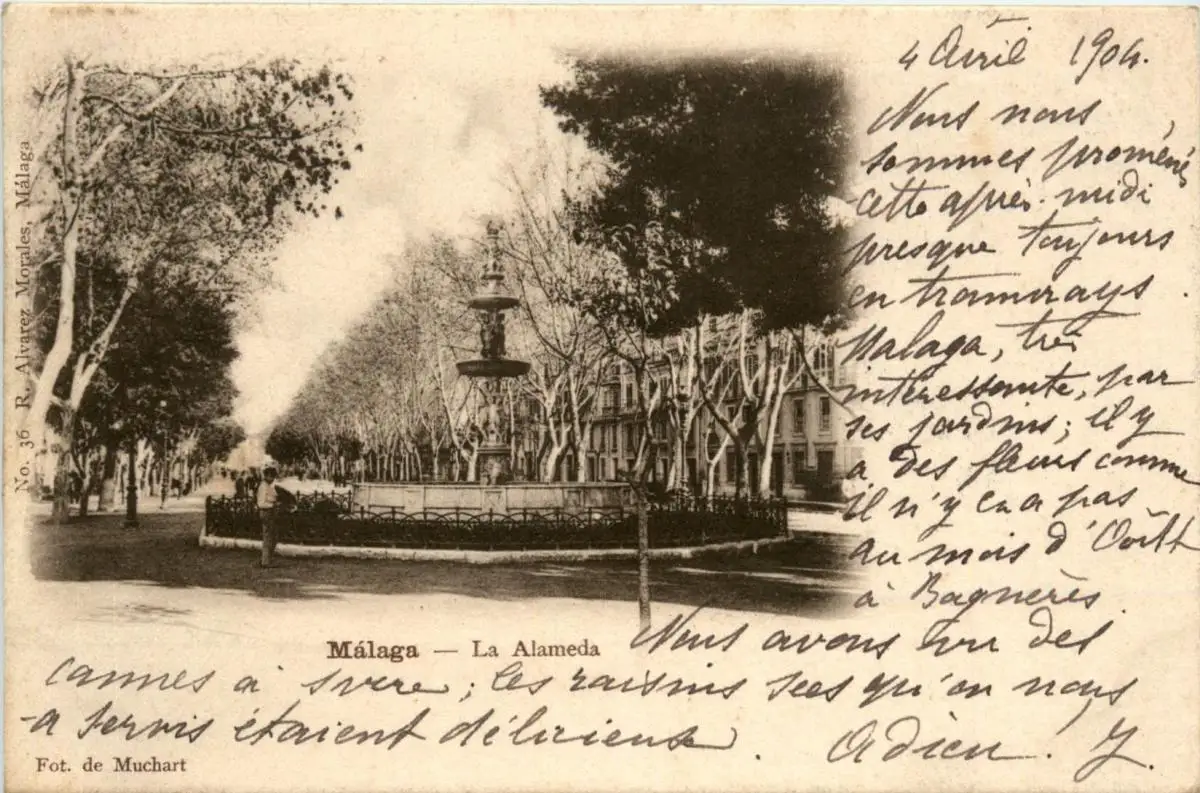 4 Avril 1904.
Nous nous
sommes promenés
cette après-midi
presque toujours
en tramways
Malaga, très
intéressante, par
ses jardins; il y
a des fleurs comme
il n'y en a pas
au mois d'Août
à Bagnères.
Nous avons vu des
cannes à sucre; les raisins secs qu'on nous
a servis étaient délicieux. Adieu! Y.
Málaga — La Alameda
Fot. de Muchart
No. 36 R. Alvarez Morales, Málaga